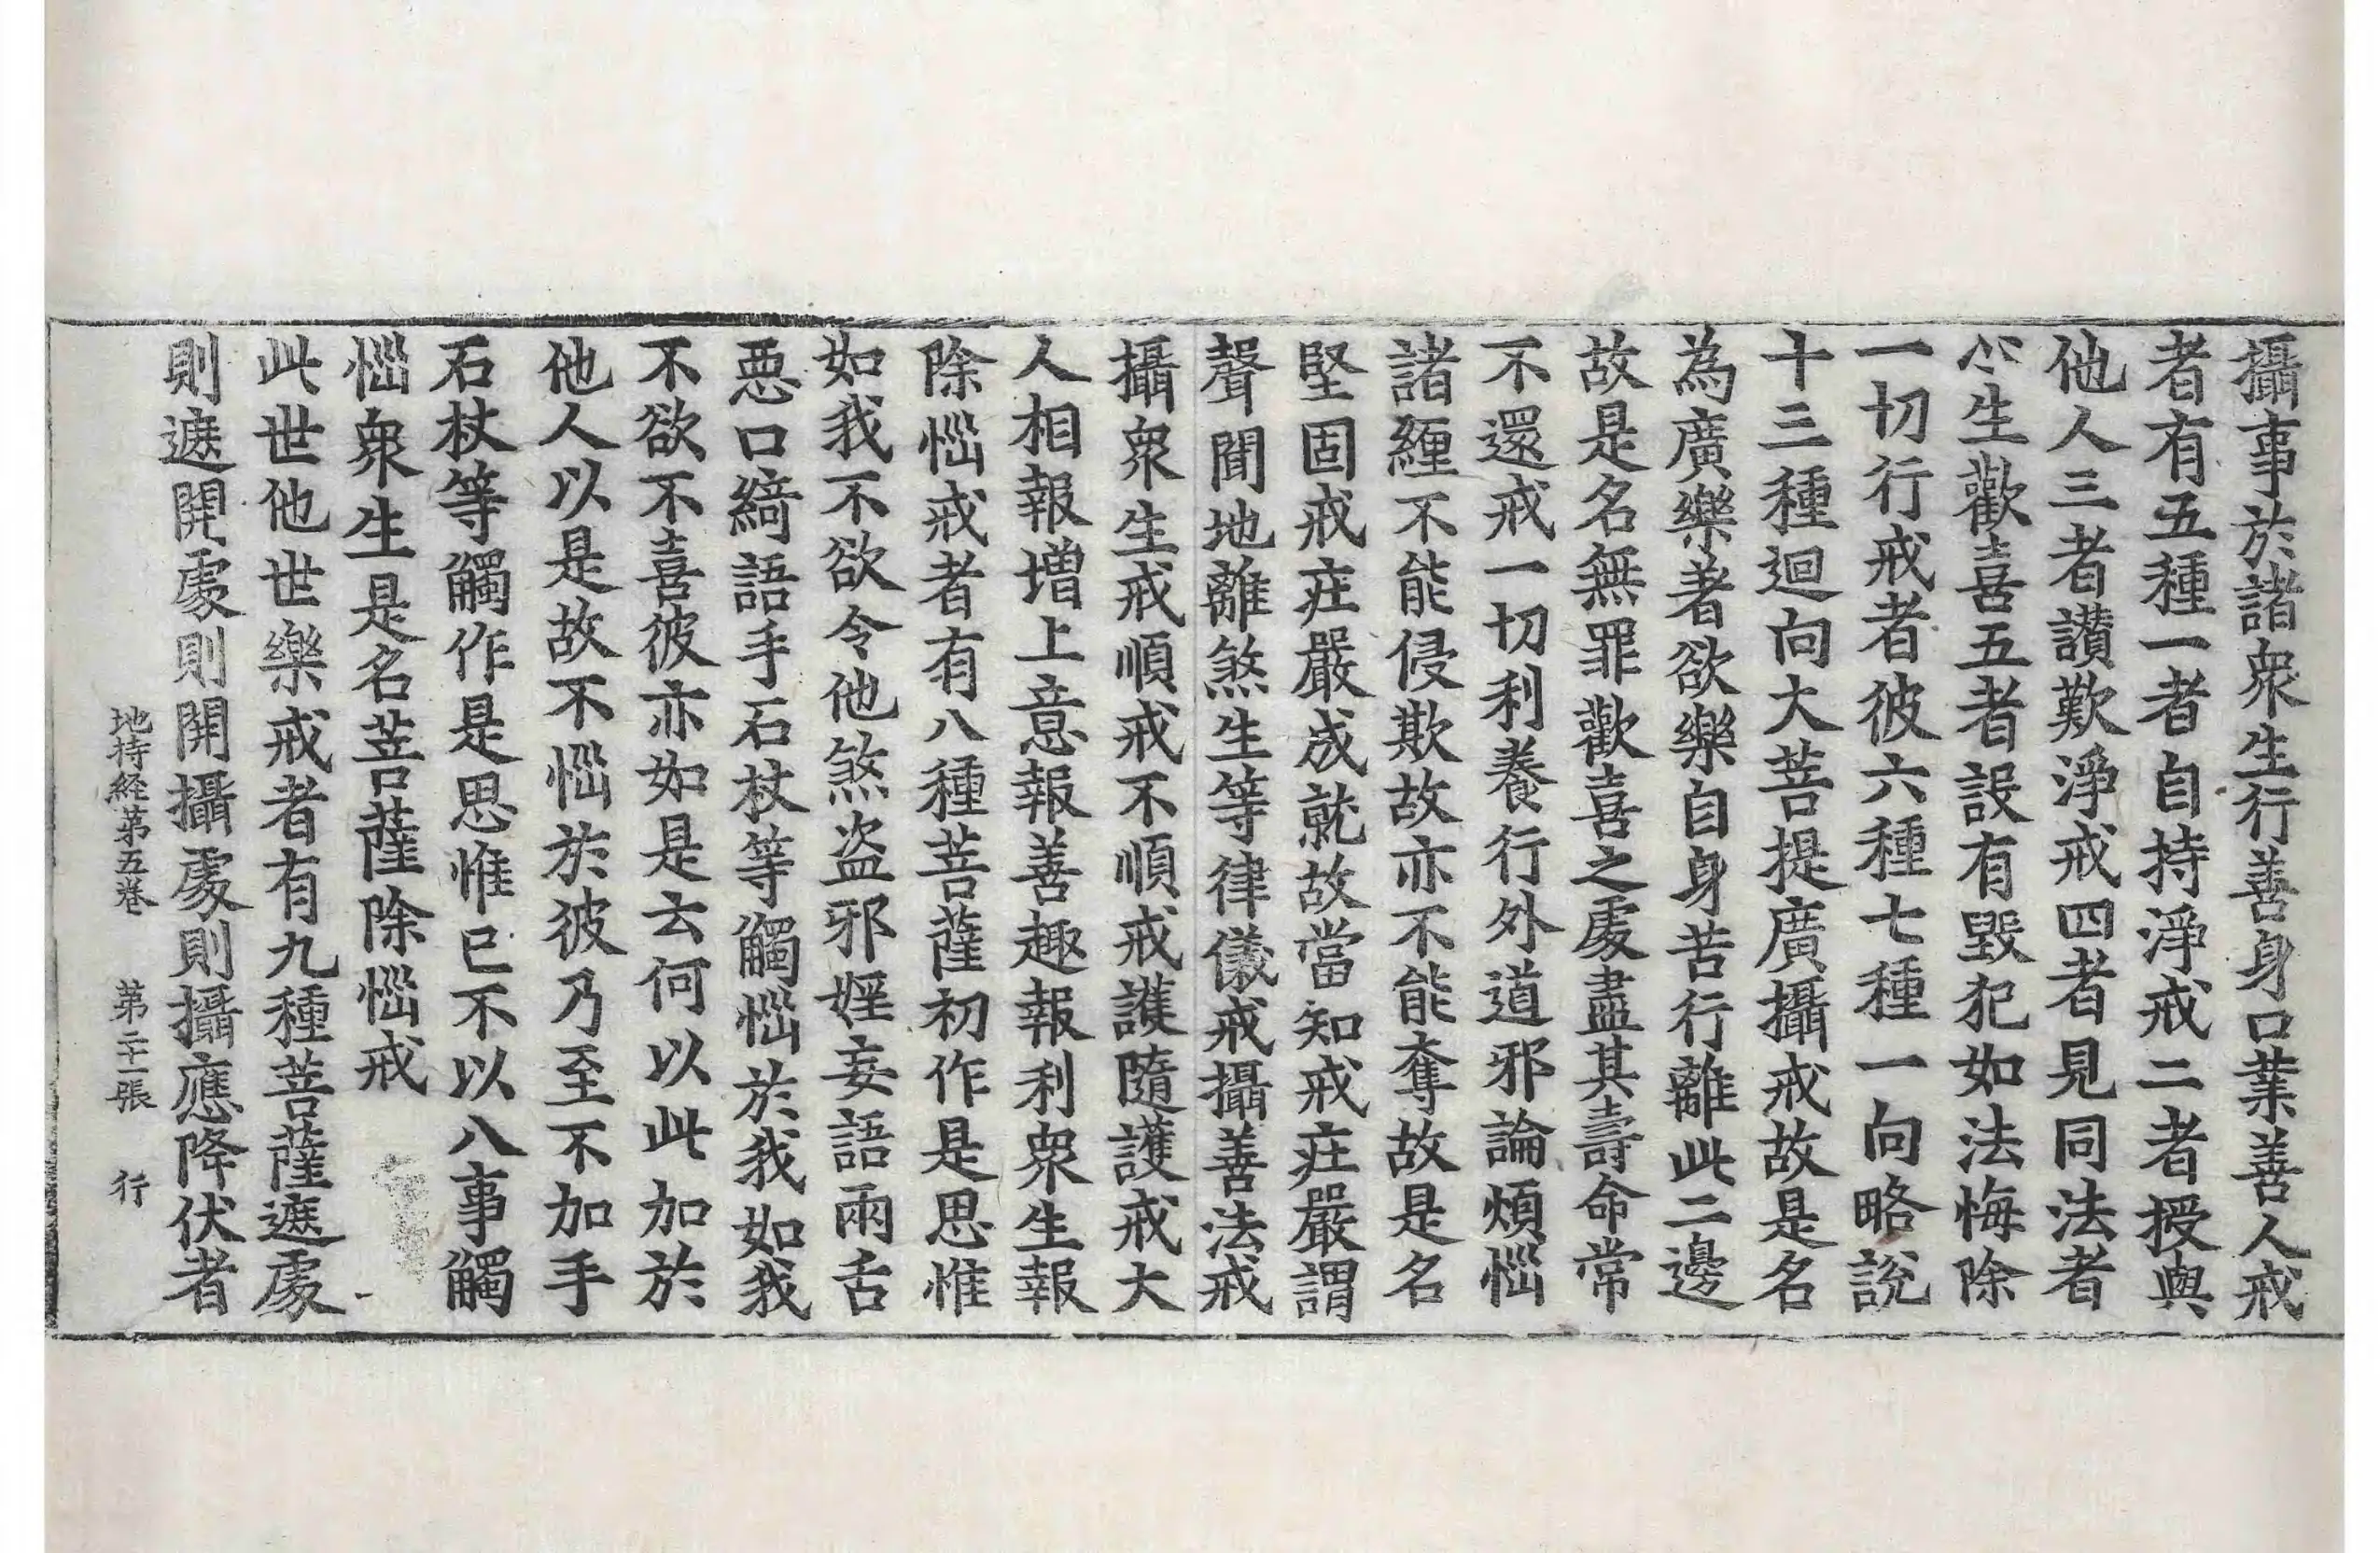 攝事於諸衆生行善身口業善人戒
者有五種一者自持淨戒二者授與
他人三者讚歎淨戒四者見同法者
心生歡喜五者設有毀犯如法悔除
一切行戒者彼六種七種一向略說
十三種迴向大菩提廣攝戒故是名
為廣樂著欲樂自身苦行離此二邊
故是名無罪歡喜之處盡其壽命常
不還戒一切利養行外道邪論煩惱
諸纏不能侵欺故亦不能奪故是名
堅固戒庄嚴成就故當知戒庄嚴謂
聲聞地離煞生等律儀戒攝善法戒
攝衆生戒順戒不順戒護隨護戒大
人相報增上意報善趣報利衆生報
除惱戒者有八種菩薩初作是思惟
如我不欲令他煞盜邪婬妄語兩舌
惡口綺語手石杖等觸惱於我如我
不欲不喜彼亦如是云何以此加於
他人以是故不惱於彼乃至不加手
石杖等觸作是思惟已不以八事觸
惱衆生是名菩薩除惱戒
此世他世樂戒者有九種菩薩遮處
則遮開處則開攝處則攝應降伏者
地持経第五卷 第二十一張 行